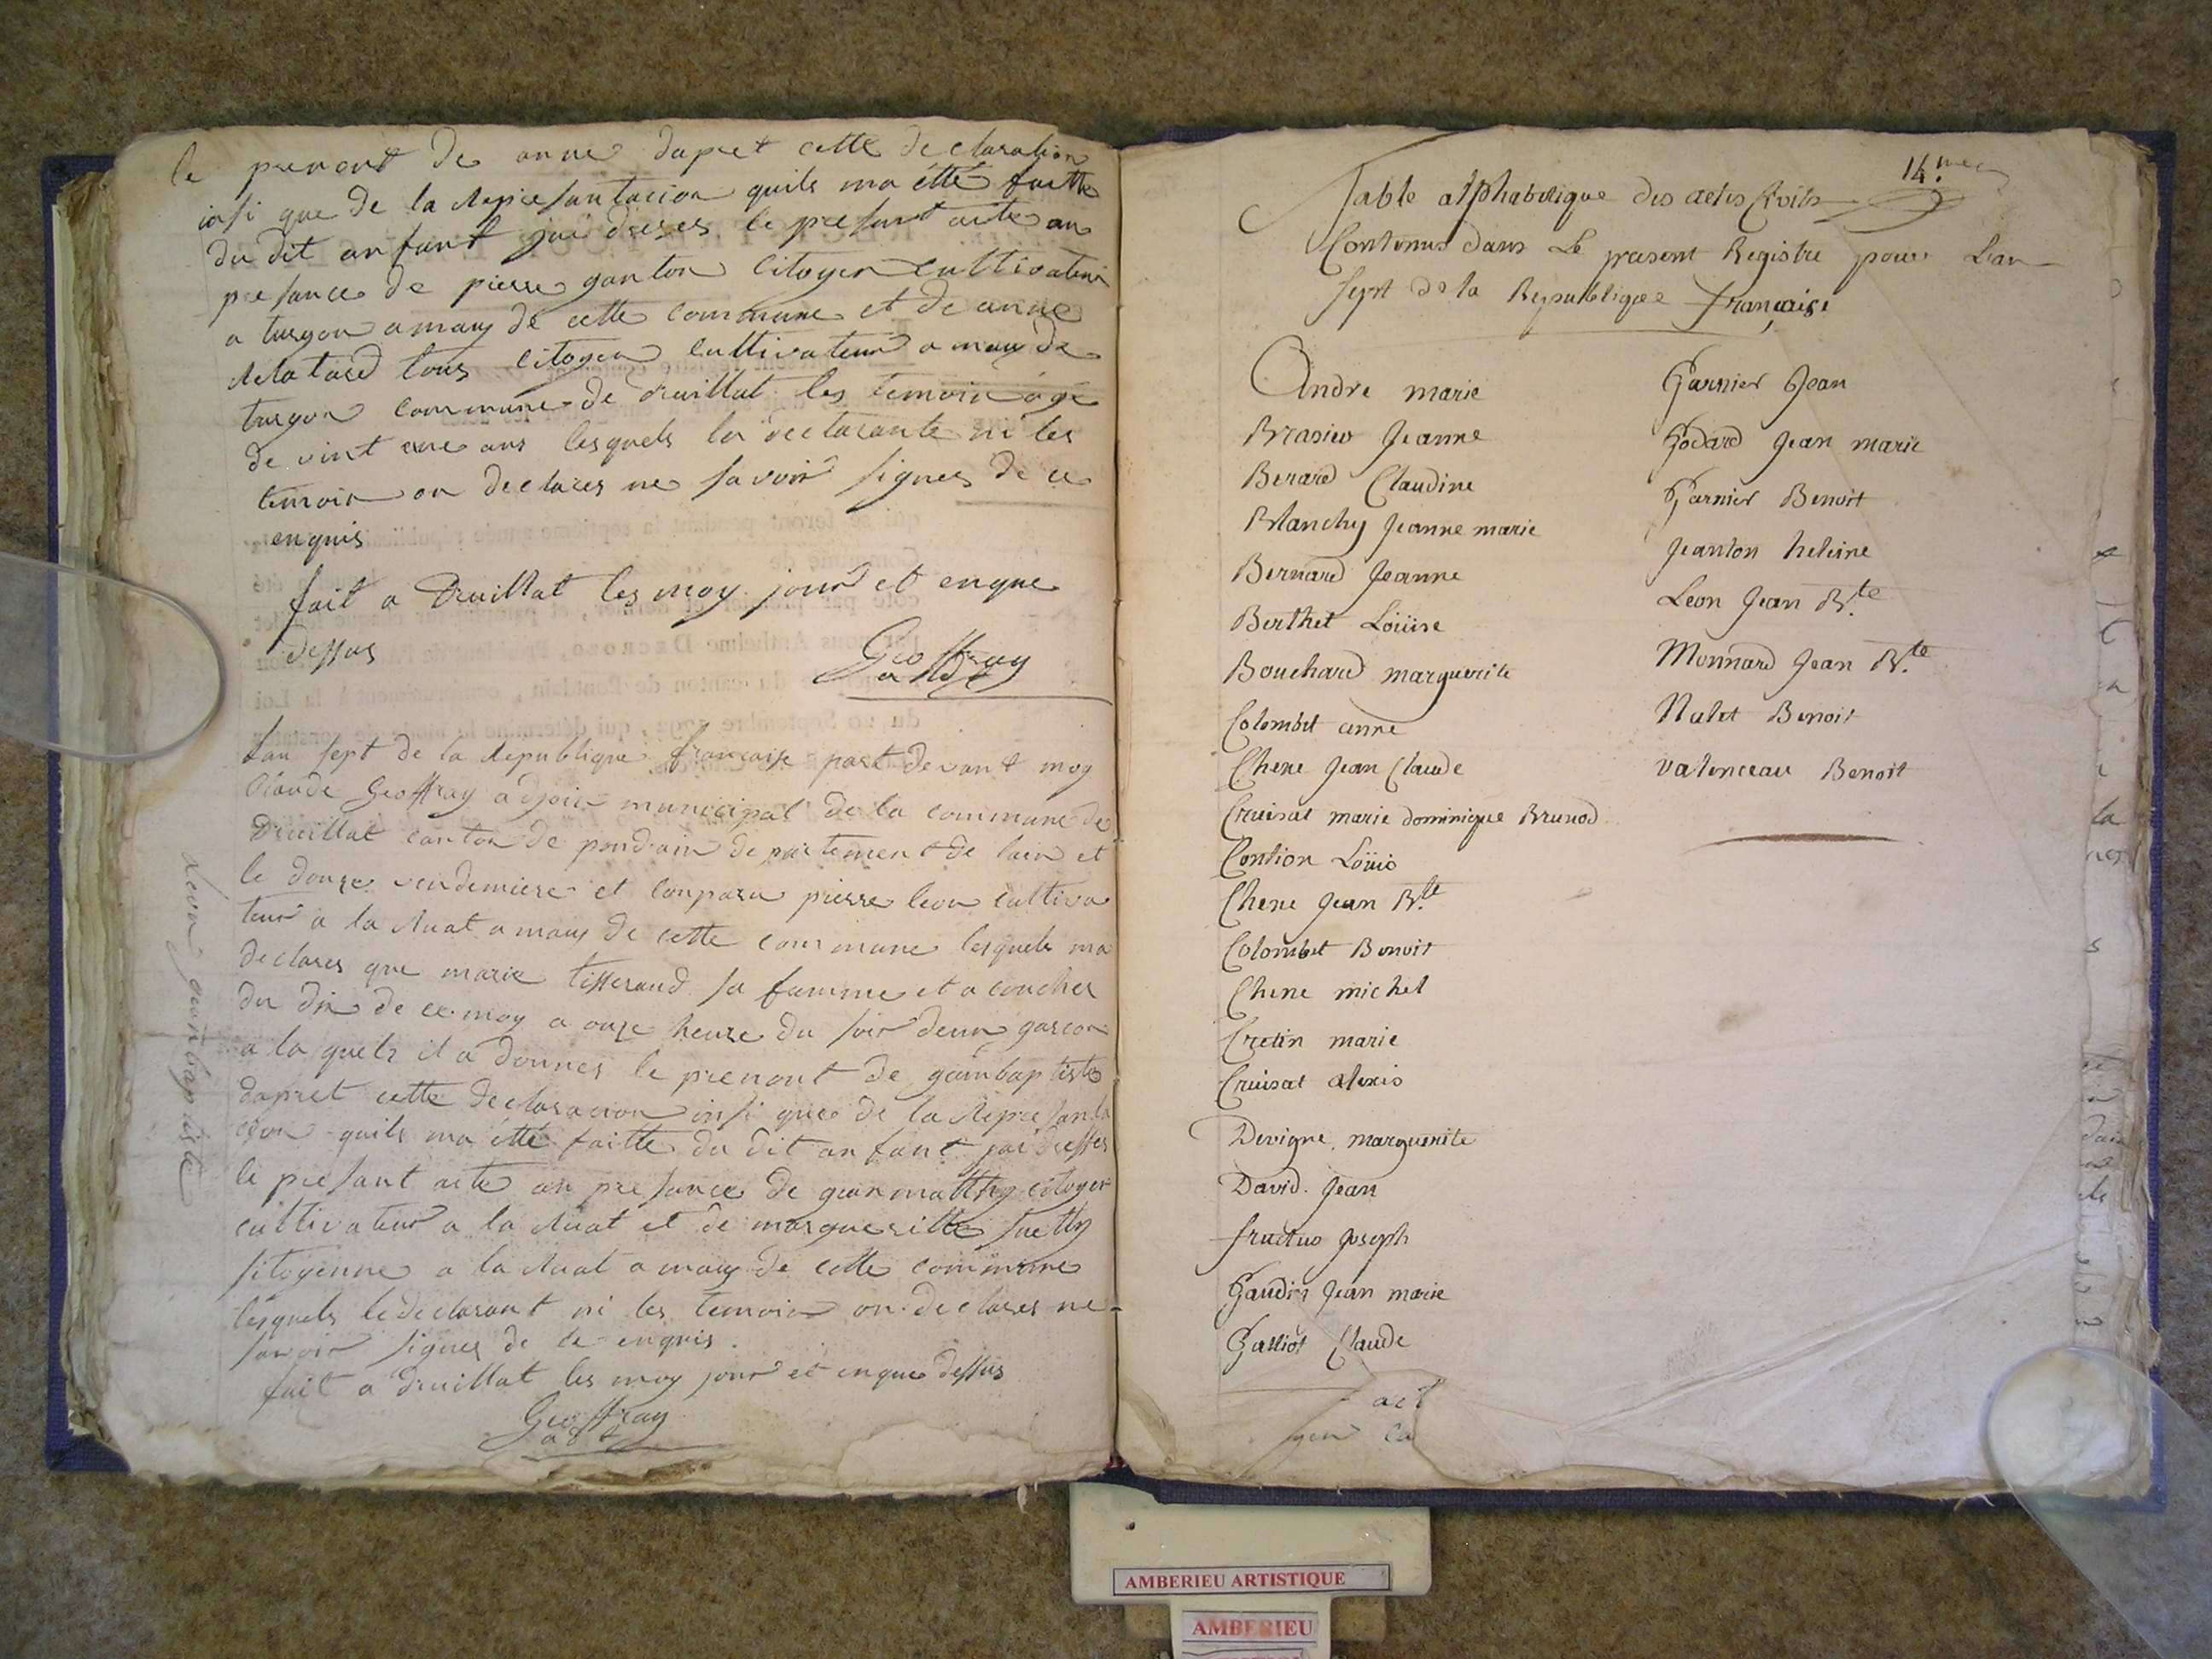 le prenont de anne dapret cette declaration
insi que de la Representacion quils ma étté faitte
du dit anfant jai dreses le presant acte an
presance de pierre ganton citoyen cultivateur
a turgon amaux de cette commune et de anne
tous citoyen cultivateur amaux de
turgon commune de druillat les temoin age
de vint une ans lesquels la declarante ni les
temoin on declares ne savoir signer de ce
enquis
fait a Druillat les moy jour et enque
dessus
Geoffray
adjt
Lan sept de la Republique française part devant moy
Claude Geoffray adjoin municipal de la commune de
Druillat canton de pondain departement de lain et
le douze vendemiere et conparu pierre leon cultiva
teur a la Ruat amaux de cette commune lesquels ma
declares que marie tisserand sa famme et acouches
du dix de ce moy a onze heure du soir deun garcon
a la quels il a donnes le prenont de jeanbaptiste
dapret cette declaracion insi que de la Represanta
cion quils ma étté faitte du dit anfant jai dresses
le presant acte an presance de jean matthy citoyen
cultivateur a la Ruat et de margueritte
sitoyenne a la Ruat amaux de cette commune
lesquels ledeclarant ni les temoin on declares ne
savoir signer de ce enquis.
fait a druillat les moy jour et enque dessus
Geoffray
adjt
Leon jean baptiste
14.me
Table alphabetique des actes Civils
Contenus dans Le present Registre pour L'an
Sept de la Republique française
Andre marie
Brasier Jeanne
Berard Claudine
Blanchy Jeanne marie
Bernard Jeanne
Berthet Loüise
Bouchard marguerite
Colombet anne
Chene Jean Claude
Cruisat marie dominique Brunod
Contion Loüis
Chene Jean B.te
Colombet Benoit
Chene michel
Cretin marie
Cruisat alexis
Devigne marguerite
David Jean
fructus Joseph
Gaudin Jean marie
Galliot Claude
Garnier Jean
Godard Jean marie
Garnier Benoit
Jeanton heleine
Leon Jean B.te
Monnard Jean B.te
Nalet Benoit
Valenceau Benoit
AMBERIEU ARTISTIQUE
AMBERIEU